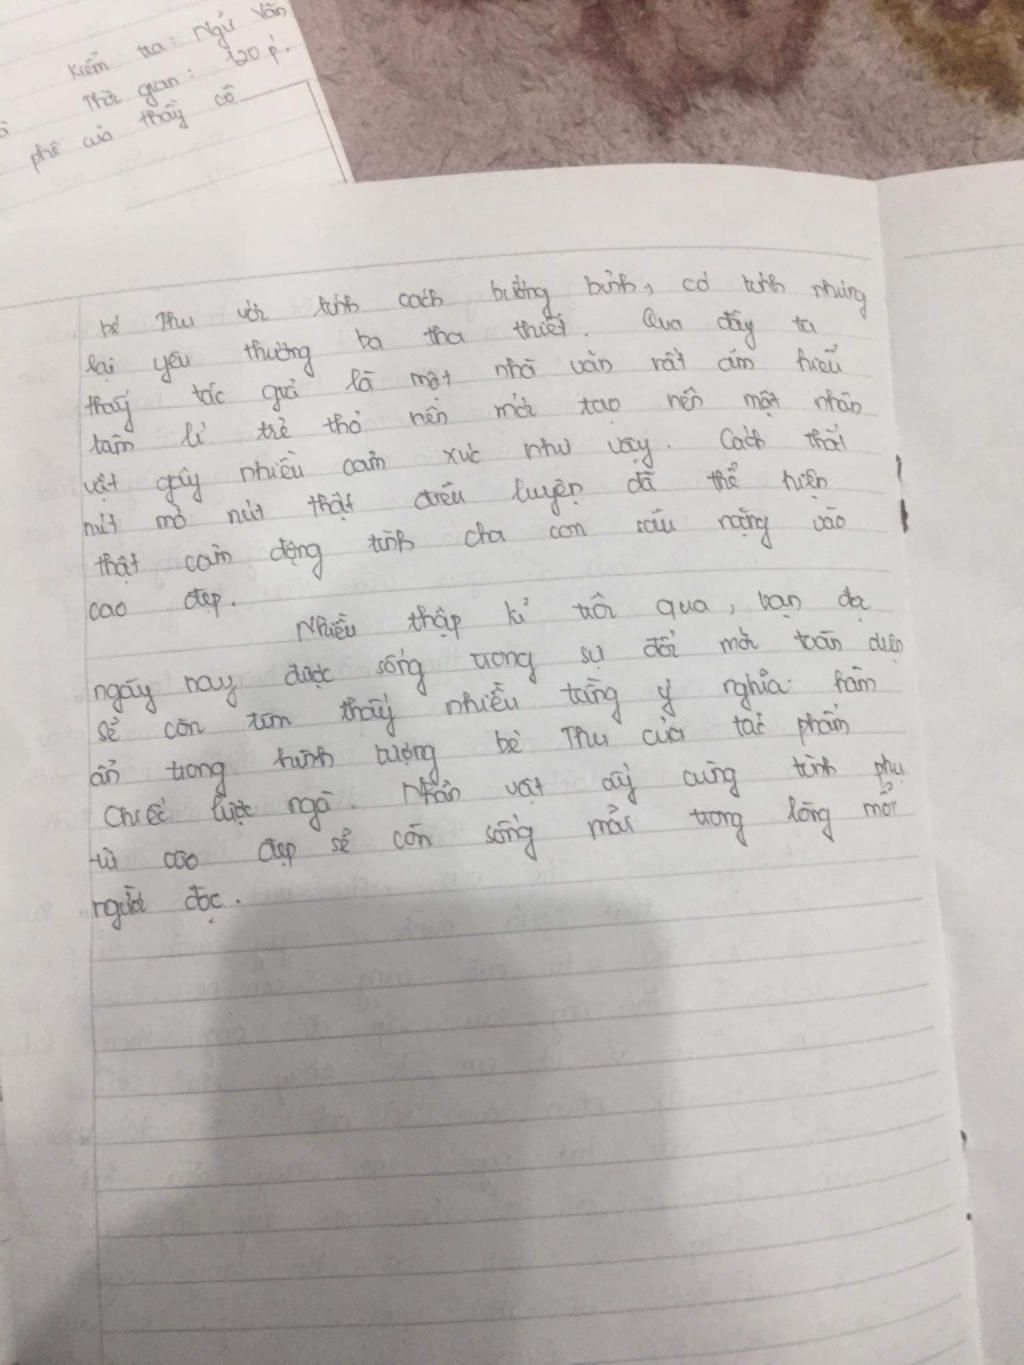 Kiểm tra: Ngữ Văn
Thời gian: 120 p.
phê của thầy cô
bé Thu với tính cách bướng bỉnh, cá tính nhưng
lại yêu thương ba tha thiết. Qua đây ta
thấy tác giả là một nhà văn rất am hiểu
tâm lí trẻ thơ nên mới tạo nên một nhân
vật gây nhiều cảm xúc như vậy. Cách thắt
nút mở nút thật điêu luyện đã thể hiện
thật cảm động tình cha con sâu nặng vào
cao đẹp.
Nhiều thập kỉ trôi qua, bạn đọc
ngày nay được sống trong sự đổi mới toàn diện
sẽ còn tìm thấy nhiều tầng ý nghĩa hàm
ẩn trong hình tượng bé Thu của tác phẩm
Chiếc lược ngà. Nhân vật ấy cùng tình phụ
tử cao đẹp sẽ còn sống mãi trong lòng mỗi
người đọc.